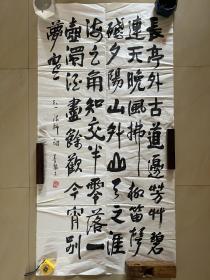 長亭外古道邊芳艸碧
連天晚風拂柳笛聲
殘夕陽山外山天之涯
海之角知交半零落一
壺濁酒盡餘歡今宵別
夢寒